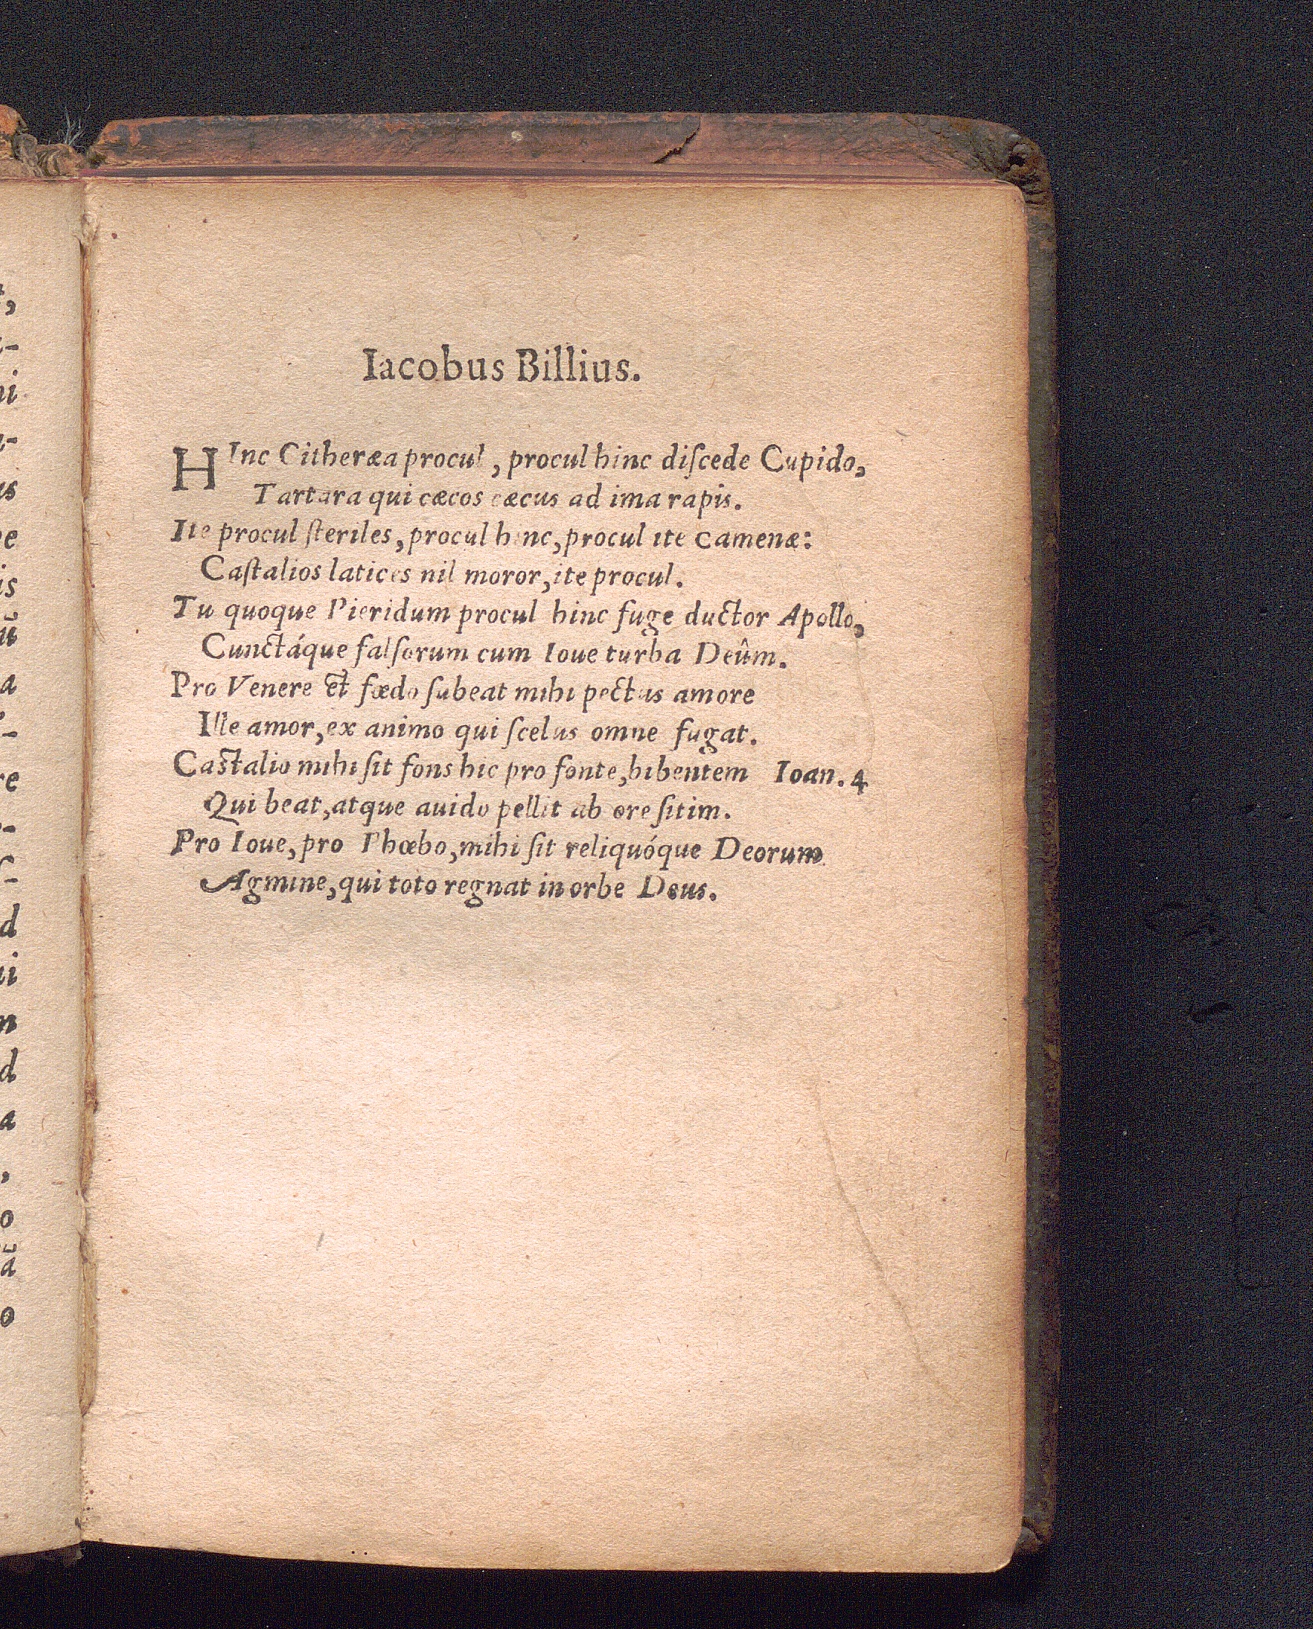 Iacobus Billius.
HInc Citheræa procul, procul hinc diſcede Cupido,
Tartara qui cæcos cæcus ad ima rapis.
Ite procul ſteriles, procul hinc, procul ite Camenæ:
Caſtalios latices nil moror, ite procul.
Tu quoque Pieridum procul hinc fuge ductor Apollo,
Cunctáque falſorum cum Ioue turba Deûm.
Pro Venere et fœdo ſubeat mihi pectus amore
Ille amor, ex animo qui ſcelus omne fugat.
Caſtalio mihi ſit fons hic pro fonte, bibentem Ioan. 4
Qui beat, atque auido pellit ab ore ſitim.
Pro Ioue, pro Phœbo, mihi ſit reliquóque Deorum
Agmine, qui toto regnat in orbe Deus.